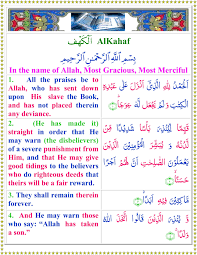 الكَهْف AlKahaf
بِسْمِ اللهِ الرَّحْمٰنِ الرَّحِيْمِ
In the name of Allah, Most Gracious, Most Merciful
1. All the praises be to
Allah, who has sent down
upon His slave the Book,
and has not placed therein
any deviance.
اَلْحَمْدُ لِلّٰهِ الَّذِىْۤ اَنْزَلَ عَلٰى عَبْدِهِ
الْكِتٰبَ وَلَمْ يَجْعَلْ لَّهٗ عِوَجًا
2. (He has made it)
straight in order that He
may warn (the disbelievers)
of a severe punishment from
Him, and that He may give
good tidings to the believers
who do righteous deeds that
theirs will be a fair reward.
قَيِّمًا لِّيُنْذِرَ بَاْسًا شَدِيْدًا مِّنْ
لَّدُنْهُ وَيُبَشِّرَ الْمُؤْمِنِيْنَ الَّذِيْنَ
يَعْمَلُوْنَ الصّٰلِحٰتِ اَنَّ لَهُمْ اَجْرًا
حَسَنًا
3. They shall remain therein
forever.
مّٰكِثِيْنَ فِيْهِ اَبَدًا
4. And He may warn those
who say: “Allah has taken
a son.”
وَّيُنْذِرَ الَّذِيْنَ قَالُوا اتَّخَذَ اللّٰهُ
وَلَدًا